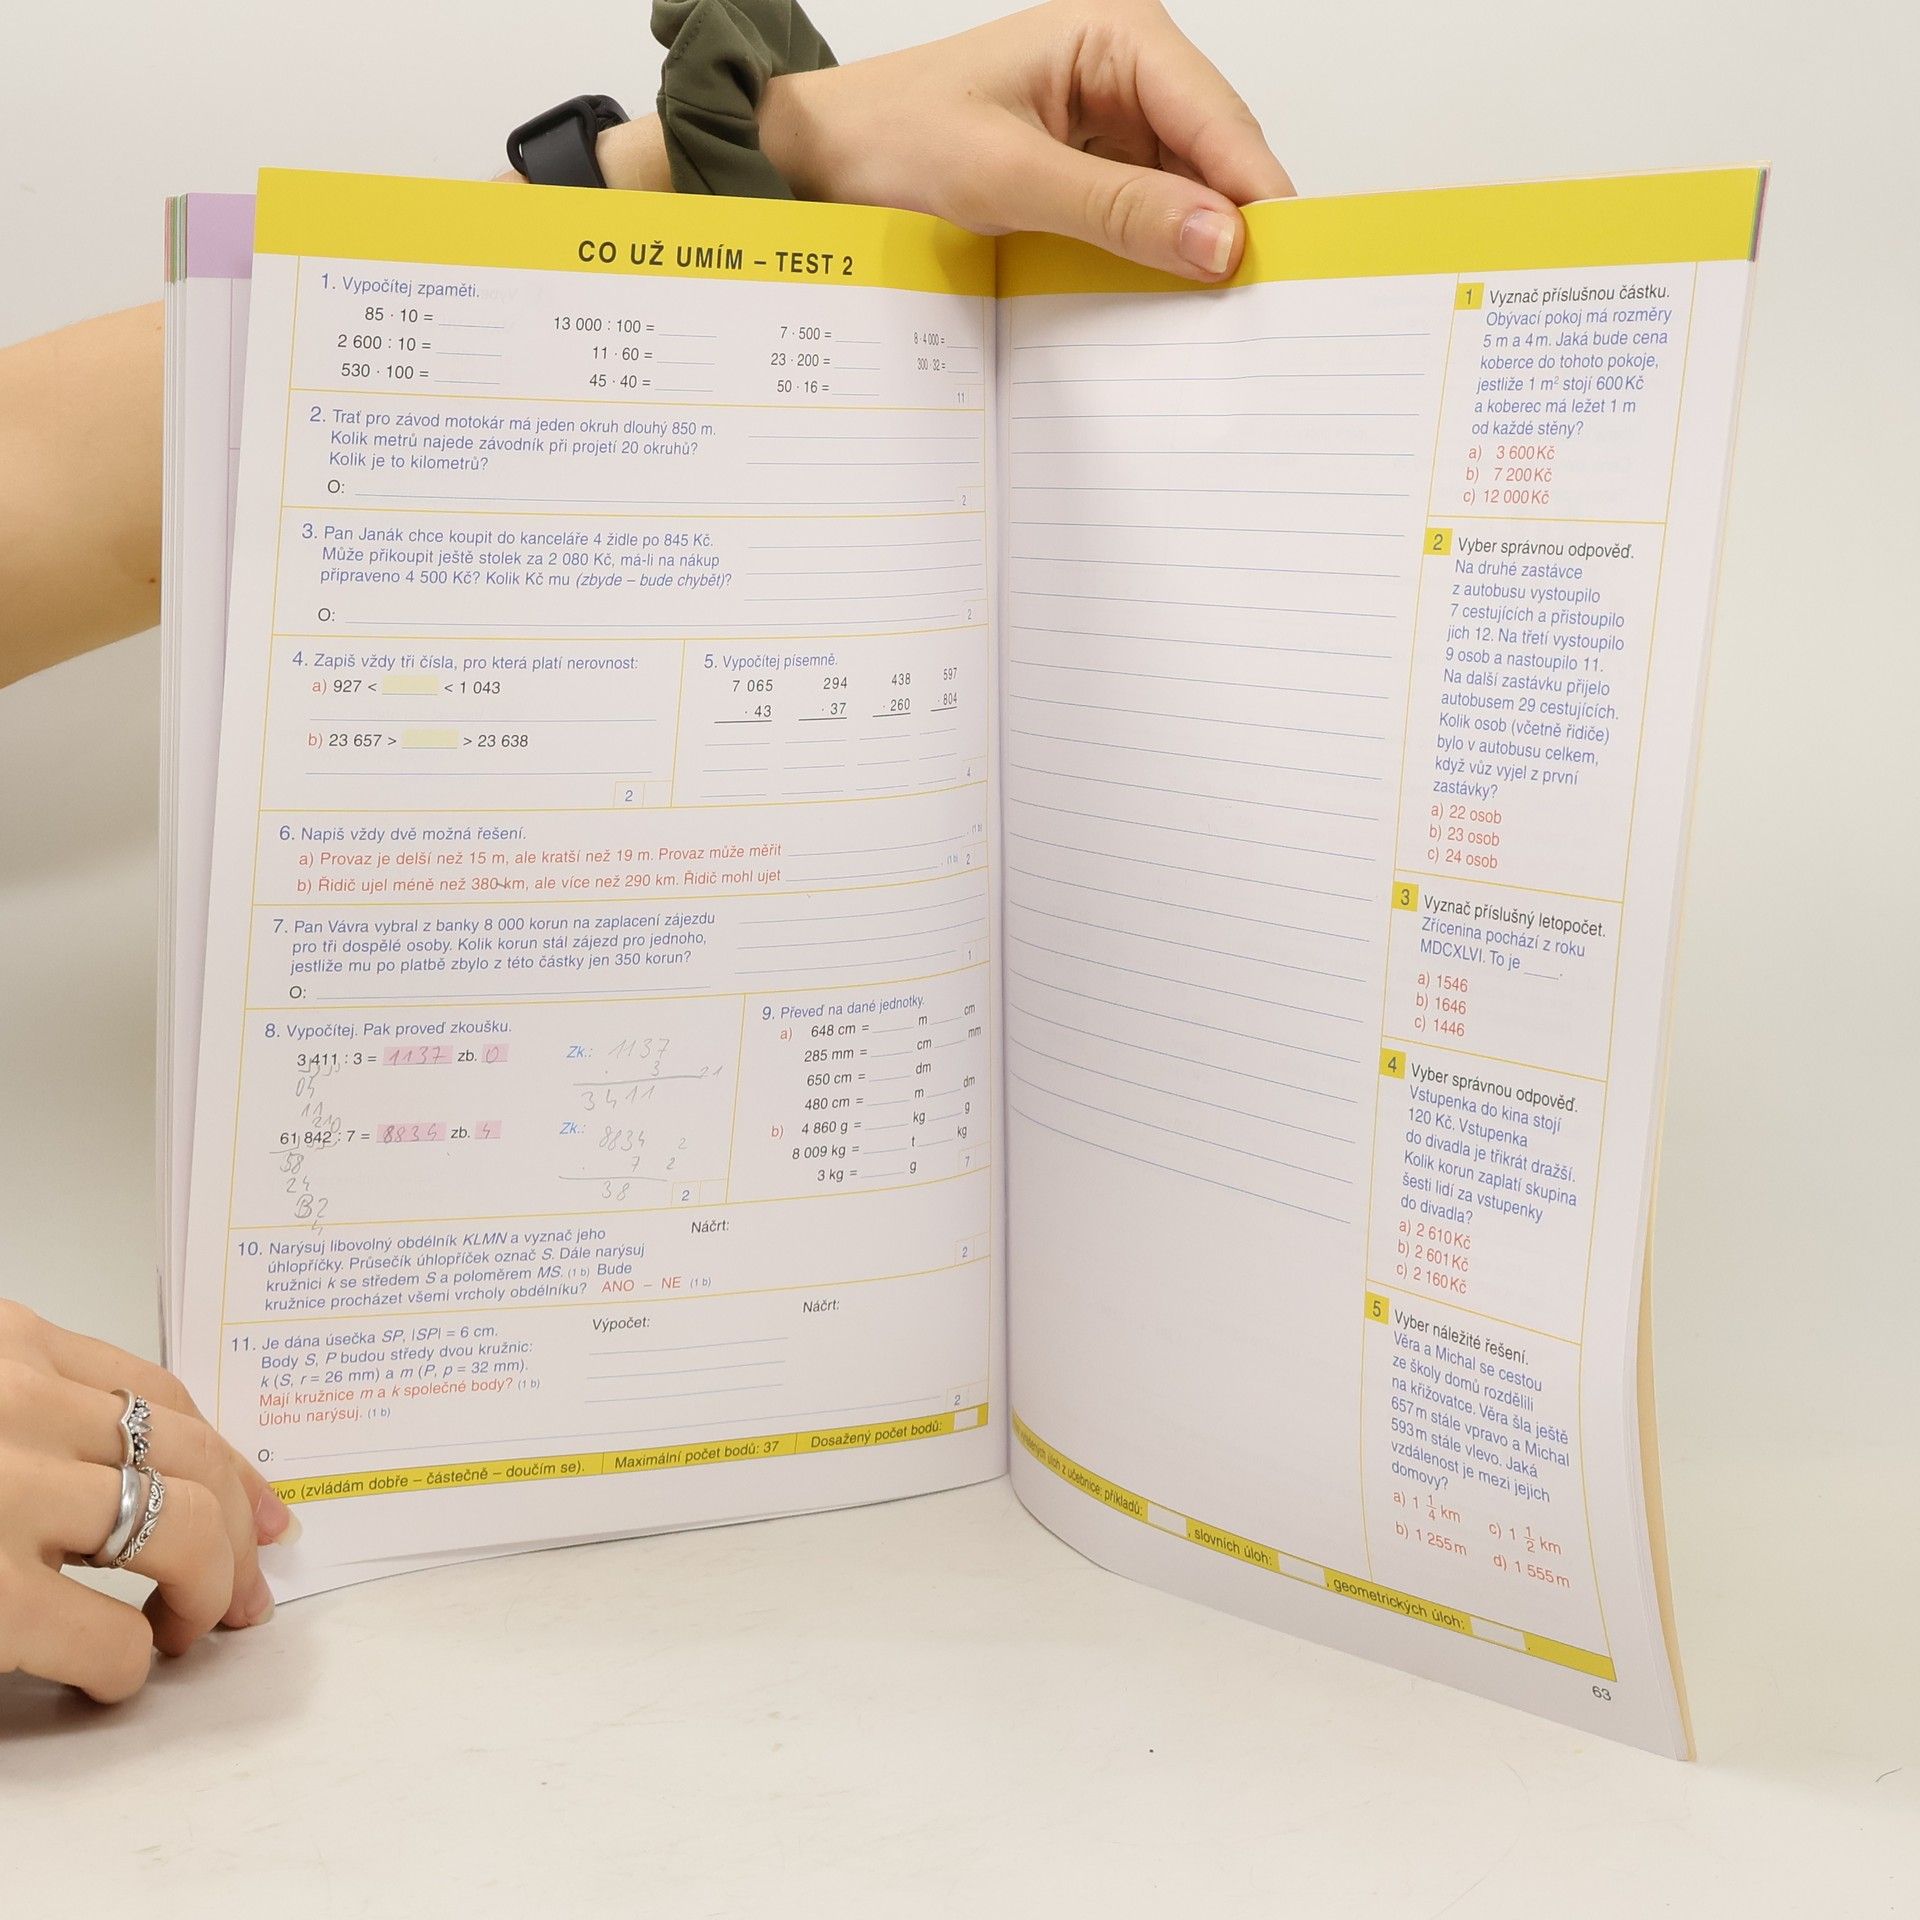 CO UŽ UMÍM – TEST 2
1. Vypočítej zpaměti.
85 · 10 =
2 600 : 10 =
530 · 100 =
13 000 : 100 =
11 · 60 =
45 · 40 =
7 · 500 =
23 · 200 =
50 · 16 =
8 · 4 000 =
300 · 32 =
11
2. Trať pro závod motokár má jeden okruh dlouhý 850 m.
Kolik metrů najede závodník při projetí 20 okruhů?
Kolik je to kilometrů?
O:
2
3. Pan Janák chce koupit do kanceláře 4 židle po 845 Kč.
Může přikoupit ještě stolek za 2 080 Kč, má-li na nákup
připraveno 4 500 Kč? Kolik Kč mu (zbyde – bude chybět)?
O:
2
4. Zapiš vždy tři čísla, pro která platí nerovnost:
a) 927 < < 1 043
b) 23 657 > > 23 638
2
5. Vypočítej písemně.
7 065 294 438 597
· 43 · 37 · 260 · 804
4
6. Napiš vždy dvě možná řešení.
a) Provaz je delší než 15 m, ale kratší než 19 m. Provaz může měřit . (1 b)
b) Řidič ujel méně než 380 km, ale více než 290 km. Řidič mohl ujet . (1 b) 2
7. Pan Vávra vybral z banky 8 000 korun na zaplacení zájezdu
pro tři dospělé osoby. Kolik korun stál zájezd pro jednoho,
jestliže mu po platbě zbylo z této částky jen 350 korun?
O:
1
8. Vypočítej. Pak proveď zkoušku.
3 411 : 3 = 1137 zb. 0 Zk.: 1137
· 3 21
3411
61 842 : 7 = 8834 zb. 4 Zk.: 8834 2
· 7 2
38
58
24
2
9. Převeď na dané jednotky.
a) 648 cm = m cm
285 mm = cm mm
650 cm = dm
480 cm = m dm
b) 4 860 g = kg g
8 009 kg = t kg
3 kg = g
7
10. Narýsuj libovolný obdélník KLMN a vyznač jeho
úhlopříčky. Průsečík úhlopříček označ S. Dále narýsuj
kružnici k se středem S a poloměrem MS. (1 b) Bude
kružnice procházet všemi vrcholy obdélníku? ANO – NE (1 b)
Náčrt:
2
11. Je dána úsečka SP, |SP| = 6 cm.
Body S, P budou středy dvou kružnic:
k (S, r = 26 mm) a m (P, p = 32 mm).
Mají kružnice m a k společné body? (1 b)
Úlohu narýsuj. (1 b)
Výpočet:
Náčrt:
O:
2
(zvládám dobře – částečně – doučím se). Maximální počet bodů: 37 Dosažený počet bodů:
1 Vyznač příslušnou částku.
Obývací pokoj má rozměry
5 m a 4 m. Jaká bude cena
koberce do tohoto pokoje,
jestliže 1 m² stojí 600 Kč
a koberec má ležet 1 m
od každé stěny?
a) 3 600 Kč
b) 7 200 Kč
c) 12 000 Kč
2 Vyber správnou odpověď.
Na druhé zastávce
z autobusu vystoupilo
7 cestujících a přistoupilo
jich 12. Na třetí vystoupilo
9 osob a nastoupilo 11.
Na další zastávku přijelo
autobusem 29 cestujících.
Kolik osob (včetně řidiče)
bylo v autobusu celkem,
když vůz vyjel z první
zastávky?
a) 22 osob
b) 23 osob
c) 24 osob
3 Vyznač příslušný letopočet.
Zřícenina pochází z roku
MDCXLVI. To je ____.
a) 1546
b) 1646
c) 1446
4 Vyber správnou odpověď.
Vstupenka do kina stojí
120 Kč. Vstupenka
do divadla je třikrát dražší.
Kolik korun zaplatí skupina
šesti lidí za vstupenky
do divadla?
a) 2 610 Kč
b) 2 601 Kč
c) 2 160 Kč
5 Vyber náležité řešení.
Věra a Michal se cestou
ze školy domů rozdělili
na křižovatce. Věra šla ještě
657 m stále vpravo a Michal
593 m stále vlevo. Jaká
vzdálenost je mezi jejich
domovy?
a) 1 1/4 km c) 1 1/2 km
b) 1 255 m d) 1 555 m
úloh z učebnice: příkladů: , slovních úloh: , geometrických úloh: .
63